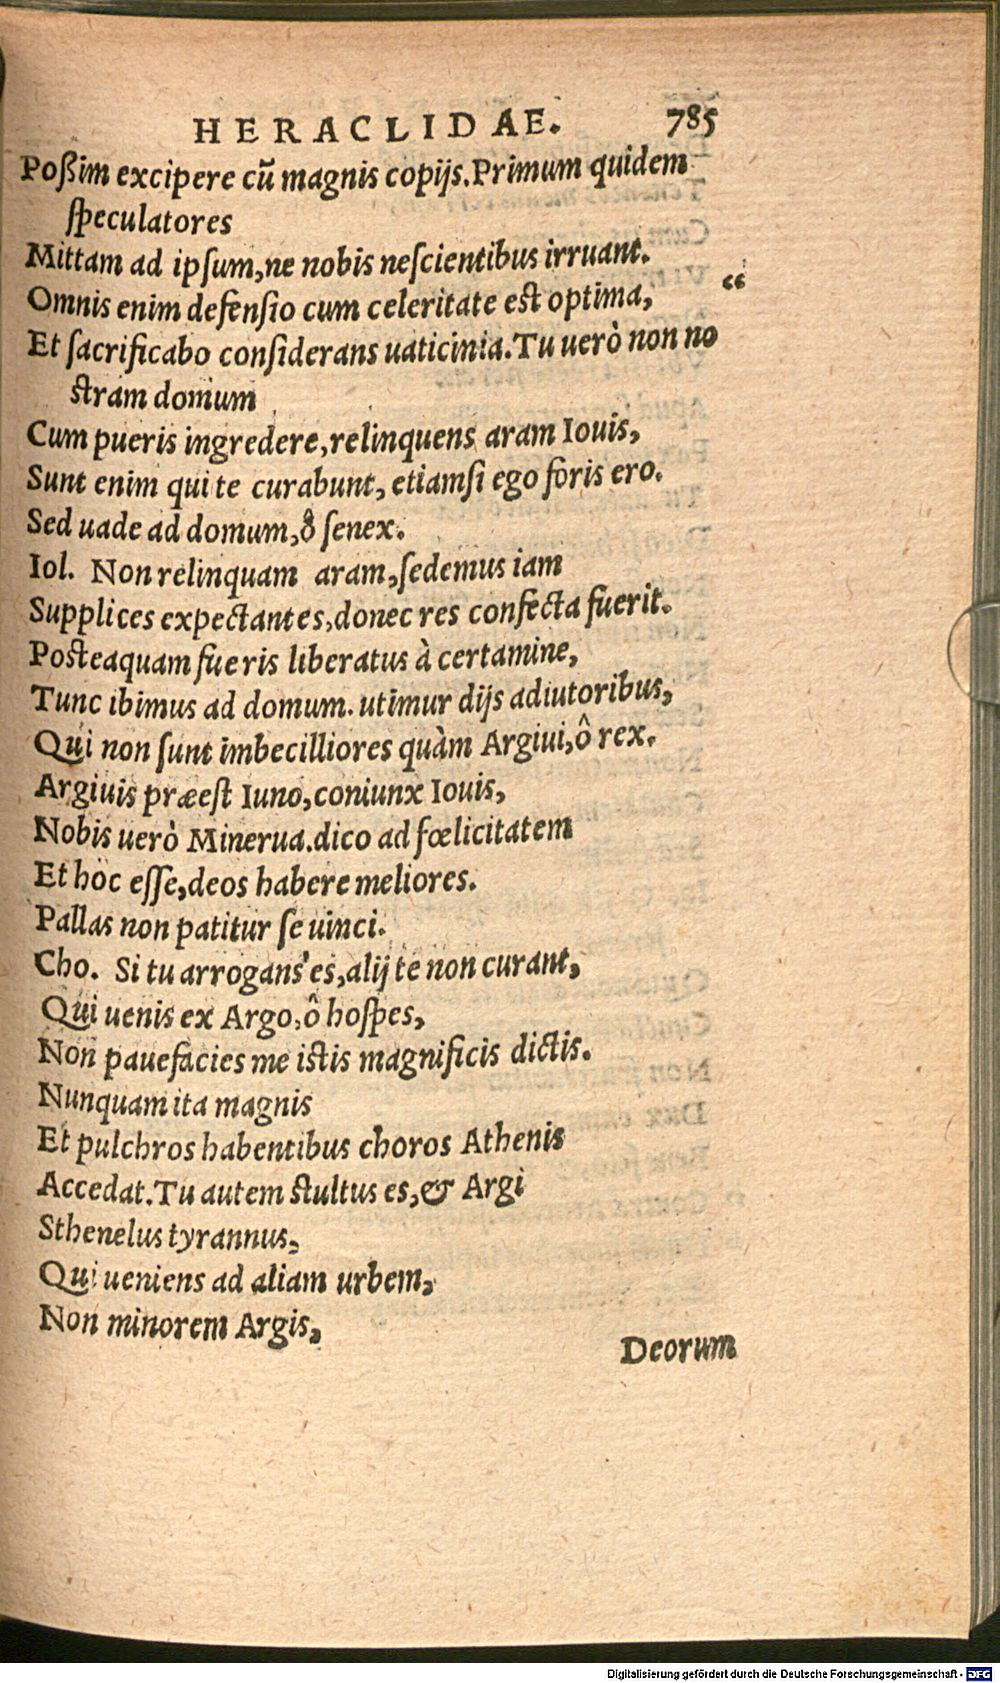 HERACLIDAE. 785
Poßim excipere cū magnis copijs. Primum quidem
ſpeculatores
Mittam ad ipſum, ne nobis neſcientibus irruant.
Omnis enim defenſio cum celeritate est optima, “
Et ſacrificabo conſiderans uaticinia. Tu uerò non no
stram domum
Cum pueris ingredere, relinquens aram Iouis,
Sunt enim qui te curabunt, etiamſi ego foris ero.
Sed uade ad domum, ô ſenex.
Iol. Non relinquam aram, ſedemus iam
Supplices expectantes, donec res confecta fuerit.
Posteaquam fueris liberatus à certamine,
Tunc ibimus ad domum. utimur dijs adiutoribus,
Qui non ſunt imbecilliores quàm Argiui, ô rex.
Argiuis præest Iuno, coniunx Iouis,
Nobis uerò Minerua. dico ad fœlicitatem
Et hoc eſſe, deos habere meliores.
Pallas non patitur ſe uinci.
Cho. Si tu arrogans es, alij te non curant,
Qui uenis ex Argo, ô hoſpes,
Non pauefacies me istis magnificis dictis.
Nunquam ita magnis
Et pulchros habentibus choros Athenis
Accedat. Tu autem stultus es, & Argi
Sthenelus tyrannus,
Qui ueniens ad aliam urbem,
Non minorem Argis,
Deorum
Digitalisierung gefördert durch die Deutsche Forschungsgemeinschaft - DFG